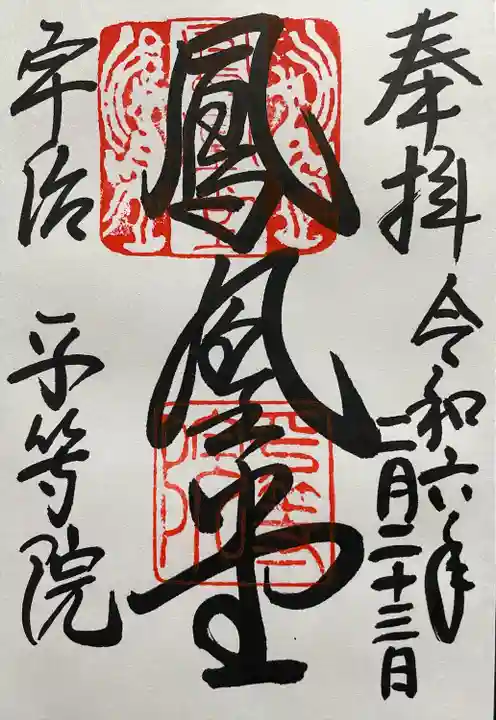 奉拝
令和六年
二月二十三日
鳳凰堂
宇治
平等院